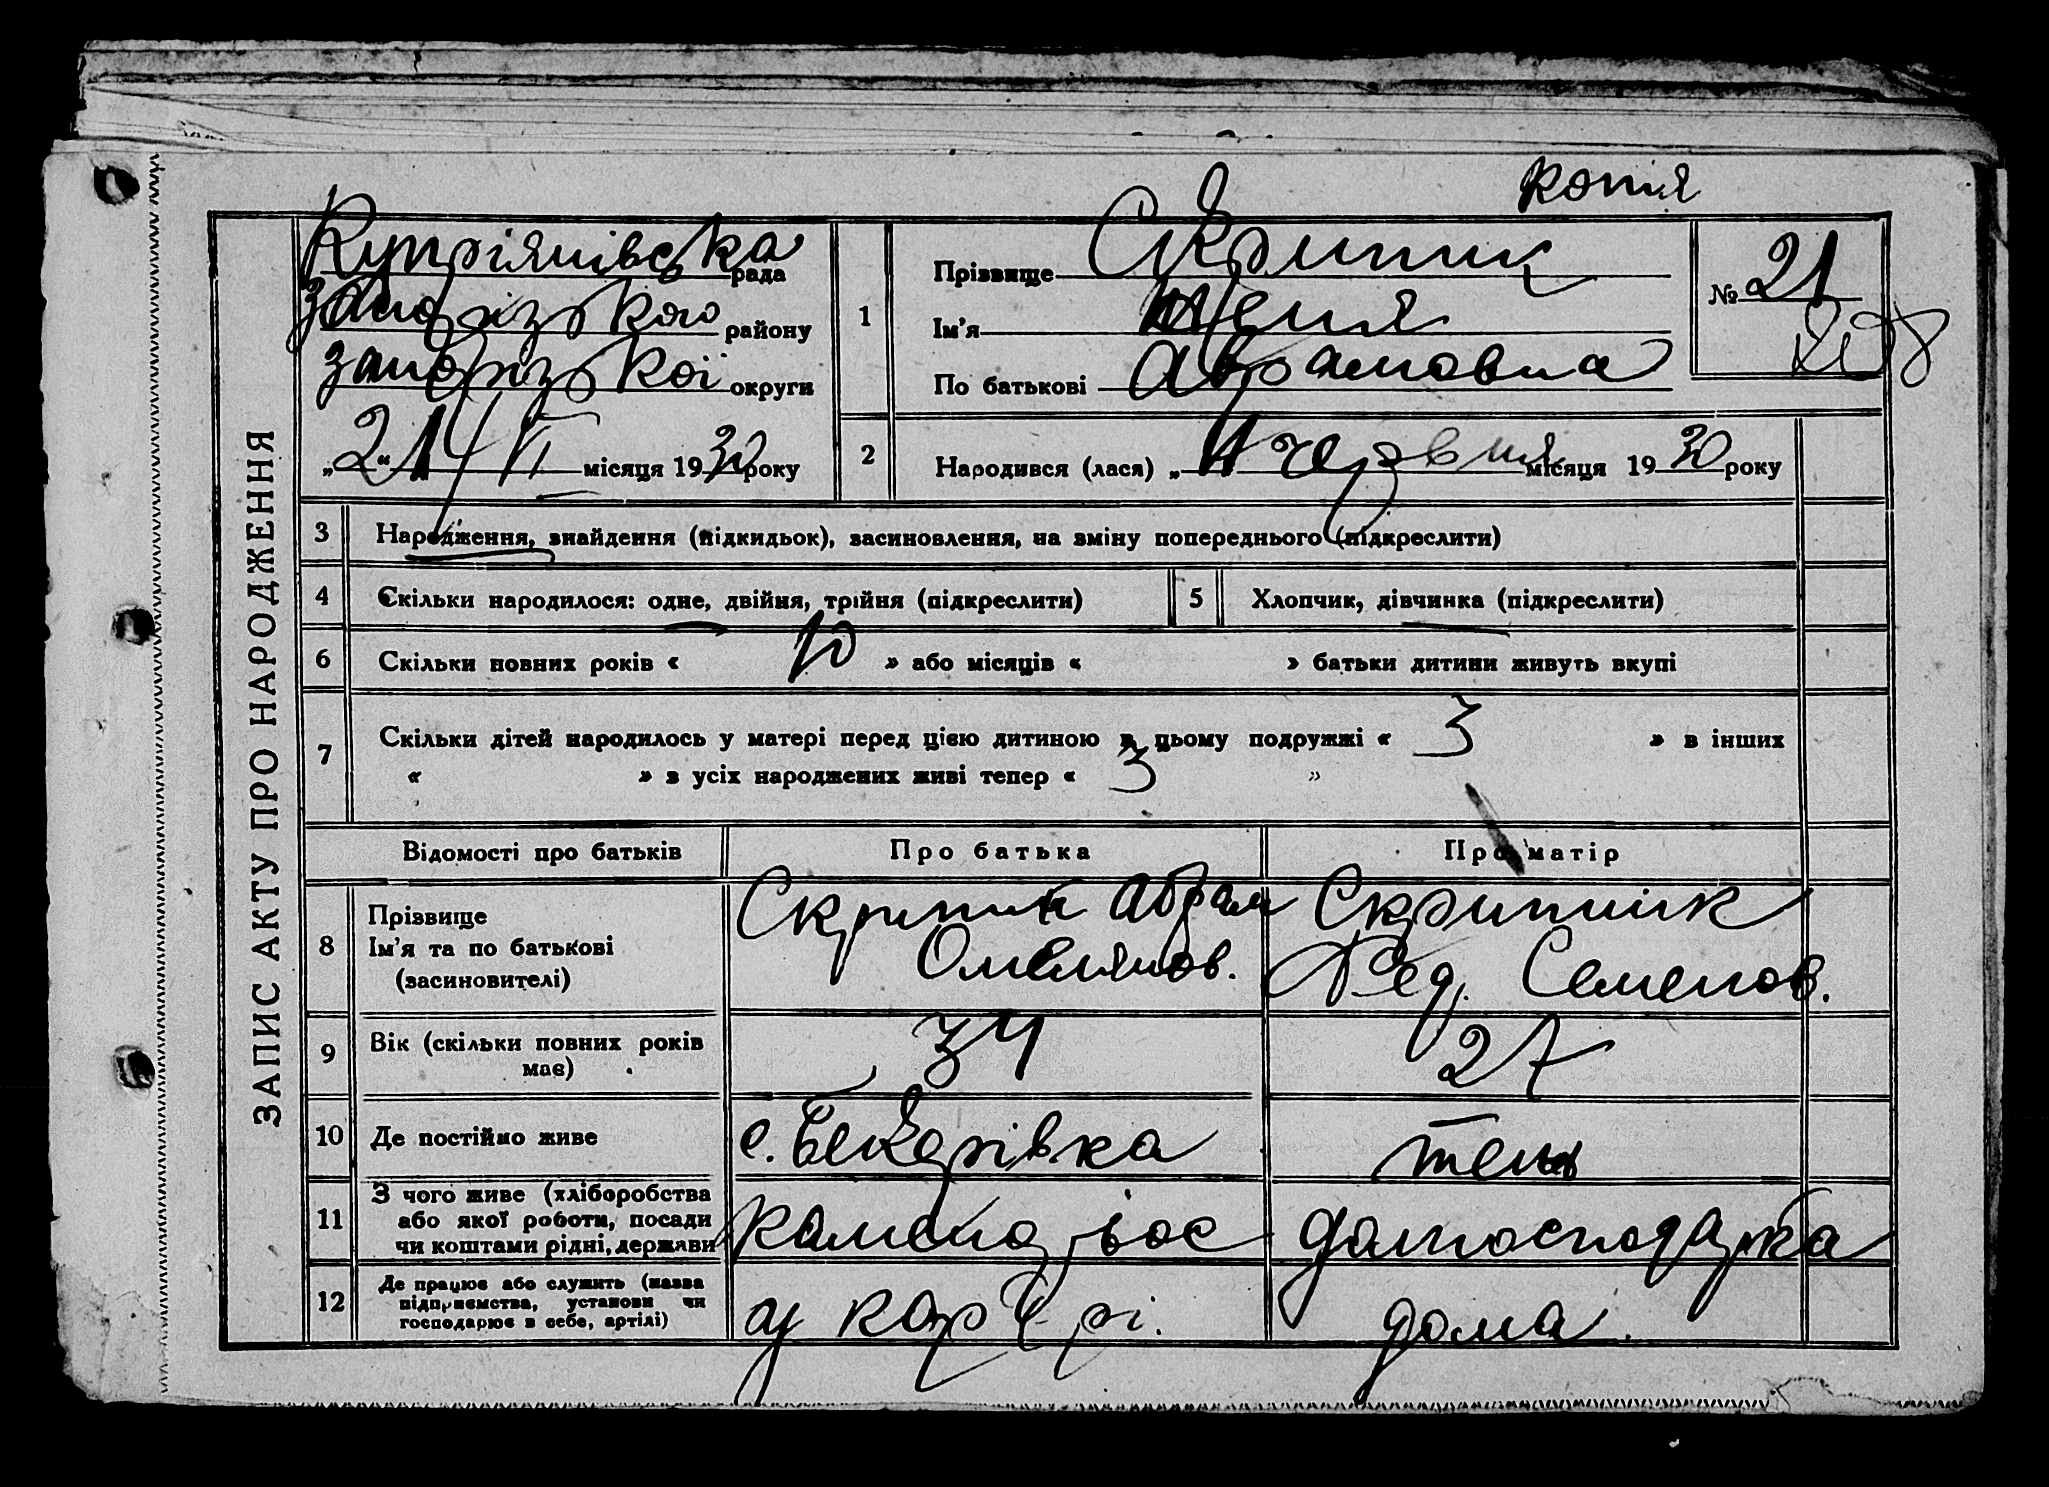 копія
ЗАПИС АКТУ ПРО НАРОДЖЕННЯ
Купріянівська рада
запорізького району
запорізької округи
„21“ VI місяця 1930 року
1 Прізвище Скрипник
Ім'я Женя
По батькові Аврамовна
№ 21
208
2 Народився (лася) „ 4 червня місяця 1930 року
3 Народження, знайдення (підкидьок), засиновлення, на зміну попереднього (підкреслити)
4 Скільки народилося: одне, двійня, трійня (підкреслити) 5 Хлопчик, дівчинка (підкреслити)
6 Скільки повних років « 10 » або місяців « » батьки дитини живуть вкупі
7 Скільки дітей народилось у матері перед цією дитиною в цьому подружжі « 3 » в інших
« » з усіх народжених живі тепер « 3 »
Відомості про батьків Про батька Про матір
8 Прізвище
Ім'я та по батькові
(засиновителі)
Скрипник Абрам
Омелянов.
Скрипник
Фед. Семенов.
9 Вік (скільки повних років має) 34 27
10 Де постійно живе с. Бекарівка тень
11 З чого живе (хліборобства
або якої роботи, посади
чи коштами рідні, держави
каменорьос домгосподарка
12 Де працює або служить (назва
підприємства, установи чи
господарює в себе, артілі)
у кар'єрі. дома.